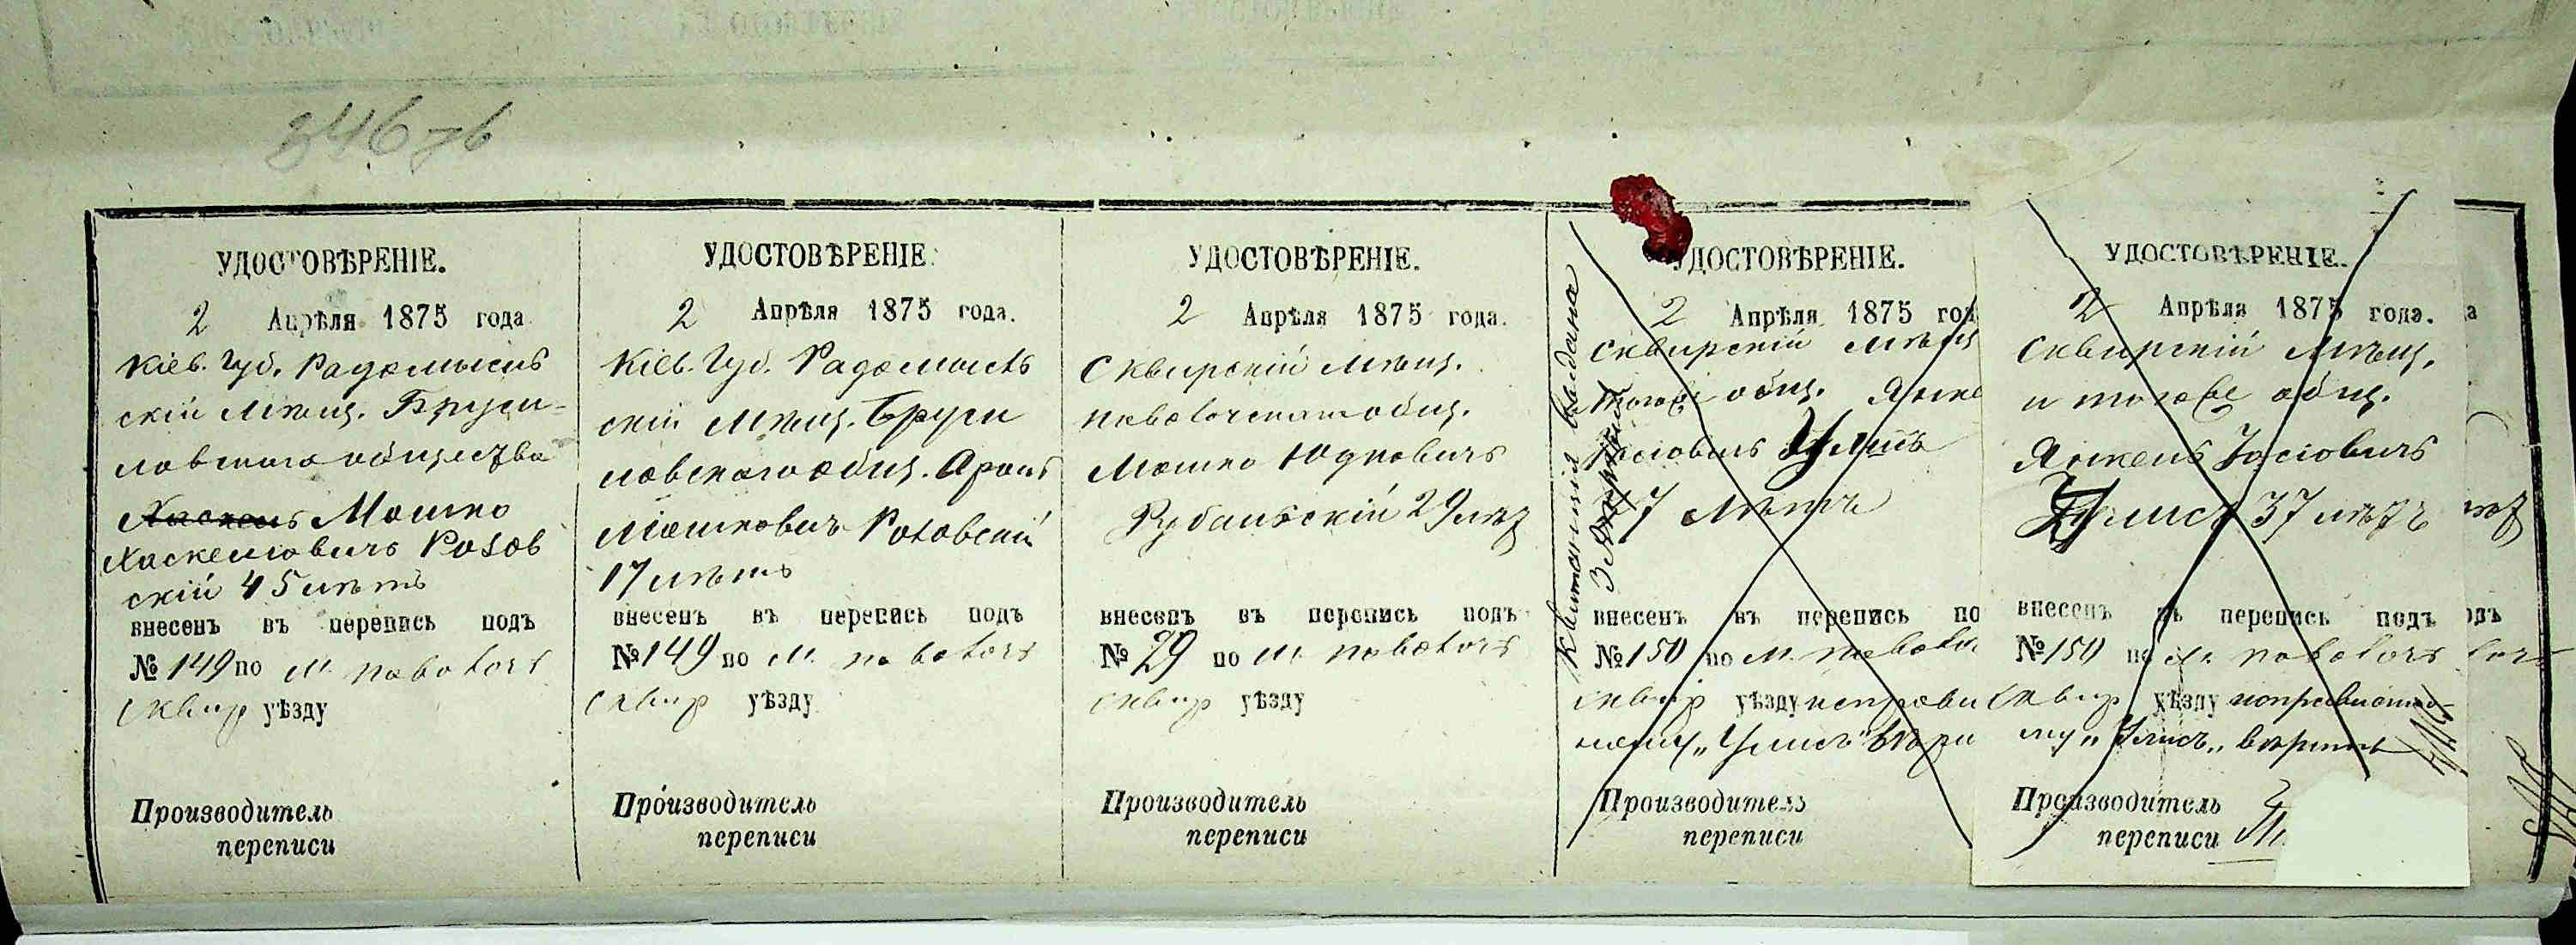 УДОСТОВѢРЕНІЕ.
2 Апрѣля 1875 года
Кіев. Губ. Радомысль
скій Мѣщ. Бруси-
ловскаго общества
Хаскель Мошко
Хаскелювичъ Розов
скій 45 лѣтъ
внесенъ въ перепись подъ
№ 149 по м. Паволочъ
Сквир уѣзду
Производитель
переписи
УДОСТОВѢРЕНІЕ.
2 Апрѣля 1875 года.
Кіев. Губ. Радомысль
скій Мѣщ. Бруси
ловскаго общ. Аронъ
Мошковичъ Розовскій
17 лѣтъ
внесенъ въ перепись подъ
№ 149 по м. Паволочъ
Сквир уѣзду
Производитель
переписи
УДОСТОВѢРЕНІЕ.
2 Апрѣля 1875 года.
Сквирскій Мѣщ.
Паволочскаго общ.
Мошко Юдковичъ
Рубанскій 29 лѣт
внесенъ въ перепись подъ
№ 29 по м. Паволочъ
Сквир уѣзду
Производитель
переписи
Квитанція выдана
УДОСТОВѢРЕНІЕ.
2 Апрѣля 1875 год
Сквирскій Мѣщ
тогоже общ. Янке
Іосіовичъ Улисъ
37 Лѣтъ
внесенъ въ перепись по
№ 150 по м. Паволо
Сквир уѣзду исправл
ному „Улисъ" вѣри
Производитель
переписи
УДОСТОВѢРЕНІЕ.
2 Апрѣля 1875 года.
Сквирскій Мѣщ.
и тогоже общ.
Янкель Іосіовичъ
Улисъ 37 лѣтъ
внесенъ въ перепись подъ
№ 150 по м. Паволочъ
Сквир уѣзду поправленно-
му „Улисъ„ вѣрить
Производитель
переписи